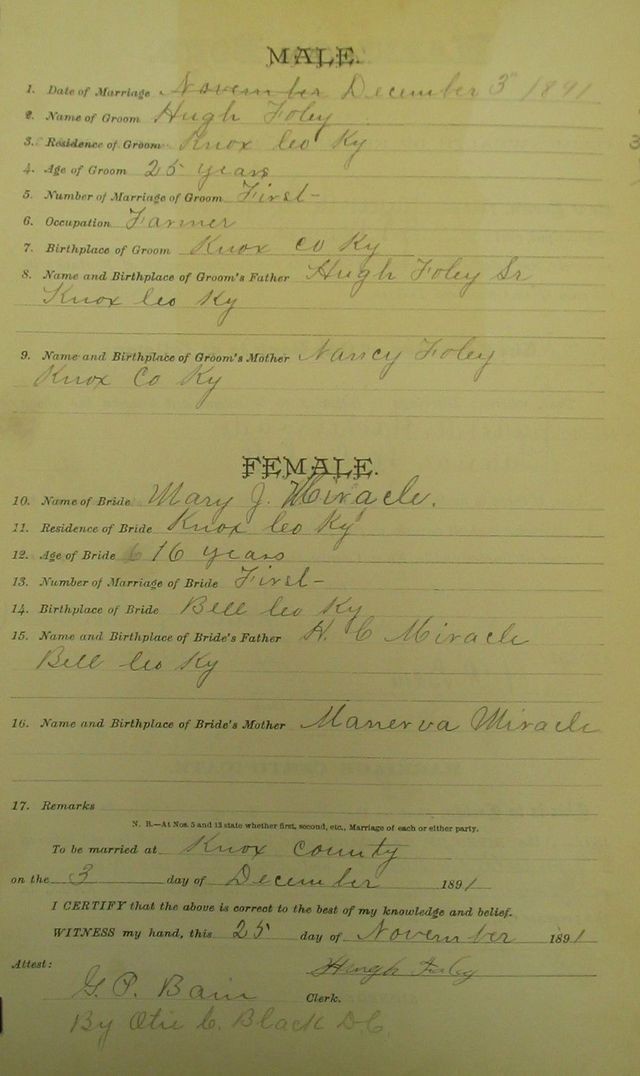 MALE.
1. Date of Marriage November December 3 1891
2. Name of Groom Hugh Foley
3. Residence of Groom Knox Co Ky
3
4. Age of Groom 25 years
5. Number of Marriage of Groom First-
6. Occupation Farmer
7. Birthplace of Groom Knox Co Ky
8. Name and Birthplace of Groom's Father Hugh Foley Sr
Knox Co Ky
9. Name and Birthplace of Groom's Mother Nancy Foley
Knox Co Ky
FEMALE.
10. Name of Bride Mary J. Miracle.
11. Residence of Bride Knox Co Ky
12. Age of Bride 16 years
13. Number of Marriage of Bride First-
14. Birthplace of Bride Bell Co Ky
15. Name and Birthplace of Bride's Father H. C Miracle
Bell Co Ky
16. Name and Birthplace of Bride's Mother Manerva Miracle
17. Remarks
N. B.—At Nos. 5 and 13 state whether first, second, etc., Marriage of each or either party.
To be married at Knox County
on the 3 day of December 1891
I CERTIFY that the above is correct to the best of my knowledge and belief.
WITNESS my hand, this 25 day of November 1891
Attest: Hugh Foley
G. P. Bain Clerk.
By Otie C. Black D.C.